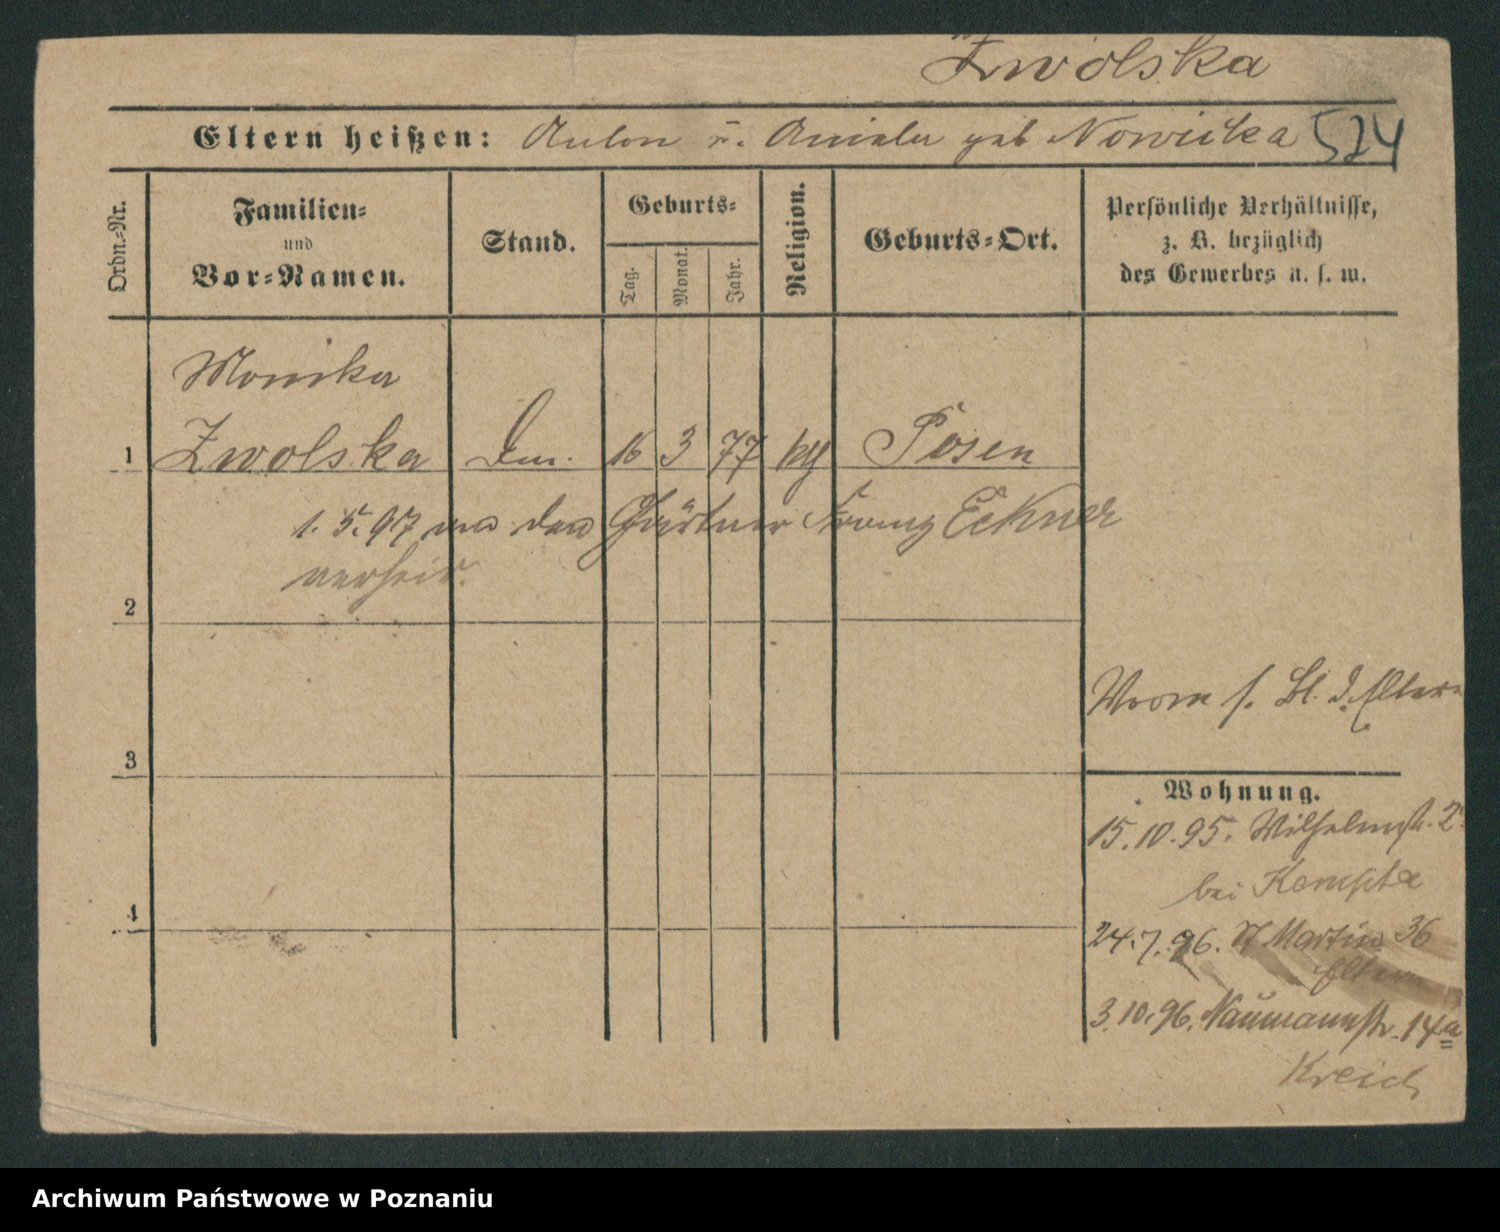 Zwolska
Eltern heißen: Anton u. Aniela geb Nowicka 524
Ordn.-Nr.
Familien-
und
Vor-Namen.
Stand.
Geburts-
Tag.
Monat.
Jahr.
Religion.
Geburts-Ort.
Persönliche Verhältnisse,
z. B. bezüglich
des Gewerbes u. s. w.
Monika
1 Zwolska 16 3 77 Posen
1. 5. 97 an den Gärtner Franz Eckner
verheir.
2
Vrom s. Bl. d. Eltern
3
Wohnung.
15.10.95. Wilhelmstr. 2
bei
4
24.7.96. St Martin 36
Eltern
3.10.96. Naumannstr. 14a
Kreich
Archiwum Państwowe w Poznaniu